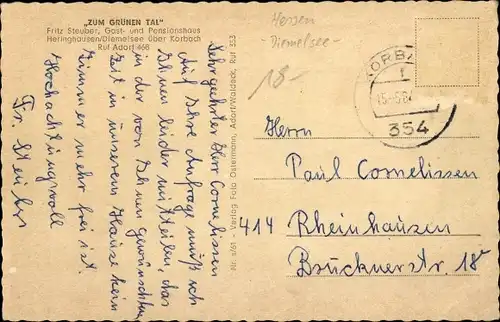 „ZUM GRÜNEN TAL"
Fritz Steuber, Gast- und Pensionshaus
Heringhausen/Diemelsee über Korbach
Ruf Adorf 468
Sehr geehrter Herr Cornelissen
Auf Ihre Anfrage muß ich
Ihnen leider mitteilen, das
in der von Ihnen gewünschten
Zeit in unserem Hause kein
Zimmer mehr frei ist.
Hochachtungsvoll
Fr. Steuber
Nr. s/61 - Verlag Foto Ostermann, Adorf/Waldeck, Ruf 353
Hessen
- Diemelsee -
18-
KORBA
354
Herrn
Paul Cornelissen
414 Rheinhausen
Brucknerstr. 18